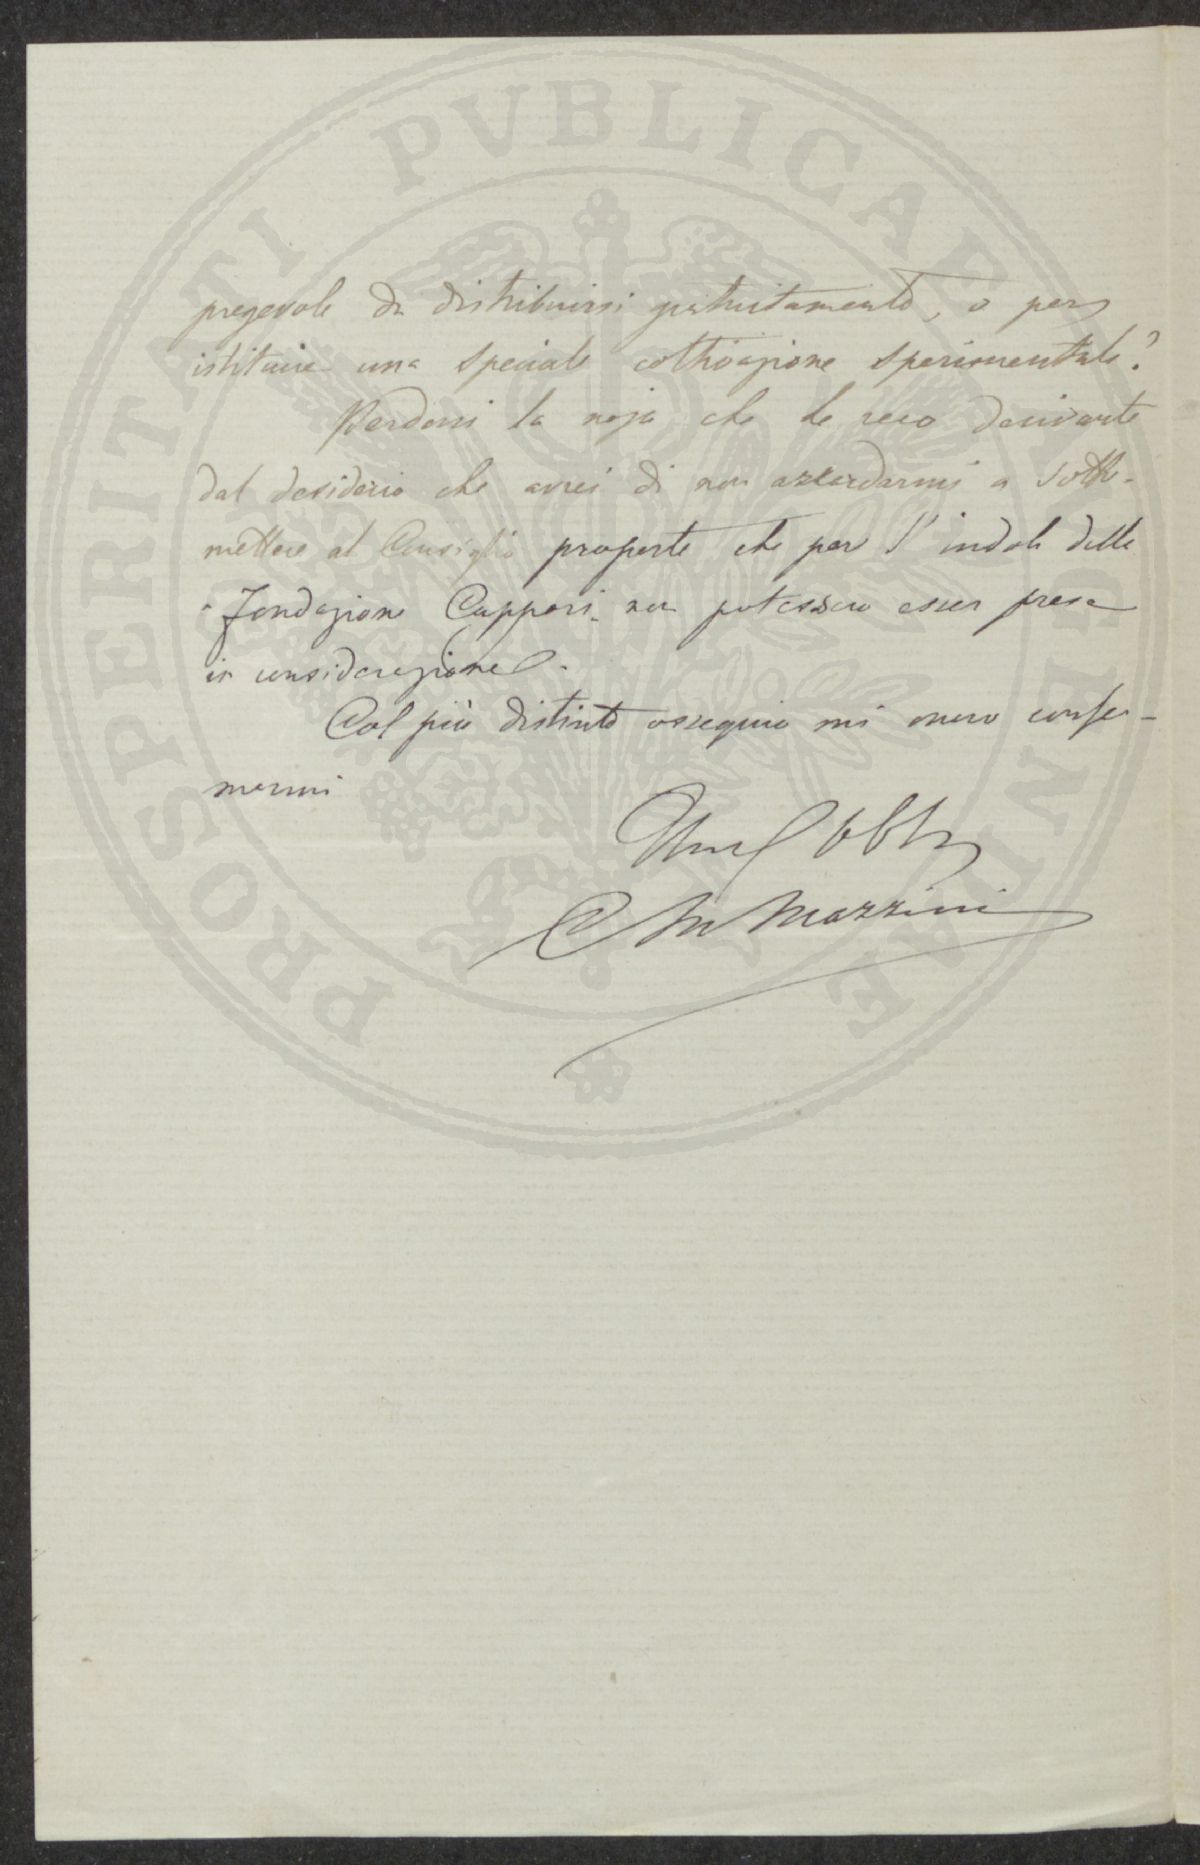 PROSPERITATI PVBLICAE AVGENDAE
pregevole da distribuirsi gratuitamente, o per
istituire una speciale coltivazione sperimentale?
Perdoni la noja che le reco derivante
dal desiderio che avrei di non azzardarmi a sotto-
mettere al Consiglio proposte che per l'indole della
Fondazione Cuppari non potessero esser prese
in considerazione.
Col più distinto ossequio mi onoro confer-
marmi
C M Mazzini